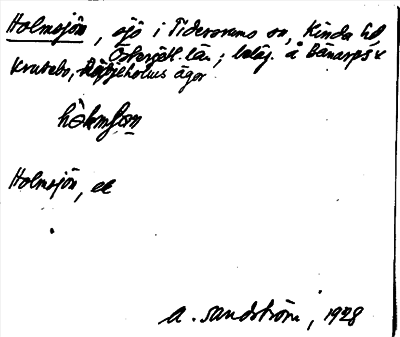 Holmsjön, sjö i Tidersrums sn, Kinda hd
Östergötl. län; beläg. å Bånarps &
Krutebo, ägor
hòlmʃøn
Holmsjön, ee
A. Sandström, 1928